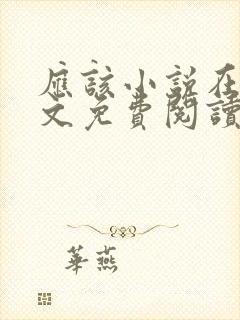 應該小說在
文免費閱讀
華燕